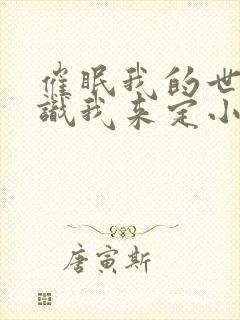 催眠我的世
識我来定小
唐寅斯